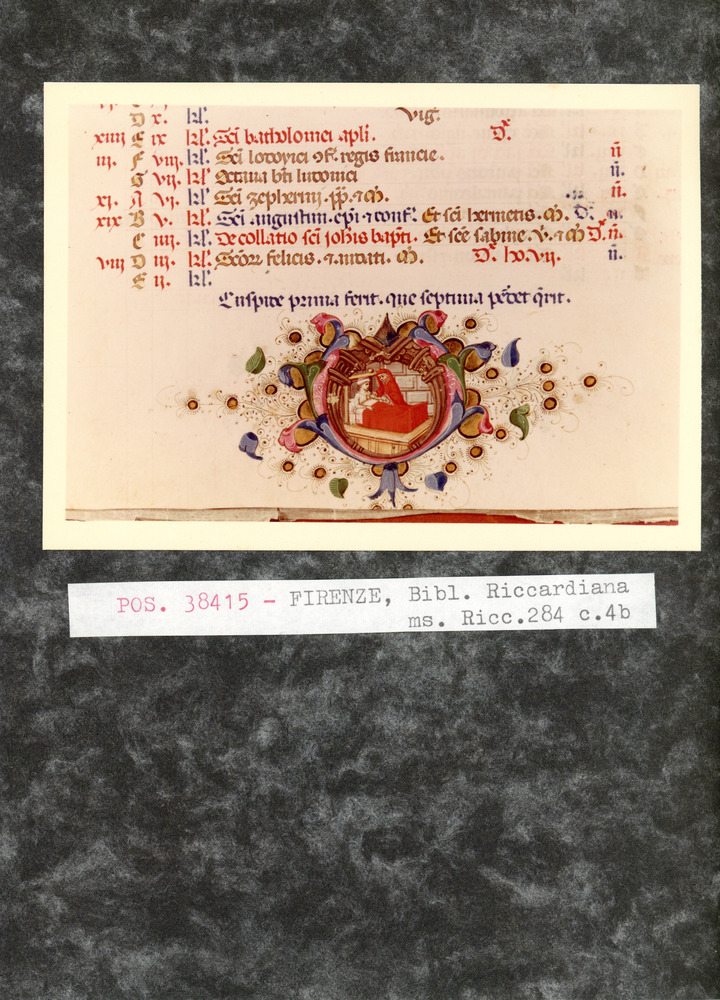 D x. kl. Vig.
xiiii E ix kl. Sci bartholomei apli. D.
iii. F viii. kl. Sci lodovici ↄf. regis francie. n
G vii. kl. Octava bti ludovici n.
xi. A vi. kl. Sci zepherini. pp. ⁊ m. n.
xix B v. kl. Sci augustini. epi. ⁊ conf. Et sci hermetis. m. D. n.
C iiii. kl. De collatio sci johis bapti. Et sce sabine. v. ⁊ m D. n.
viii D iii. kl. Scor felicis. ⁊ audati. m. D. n.
E ii. kl.
Cuspide prima ferit. que septima
POS. 38415 - FIRENZE, Bibl. Riccardiana
ms. Ricc.284 c.4b